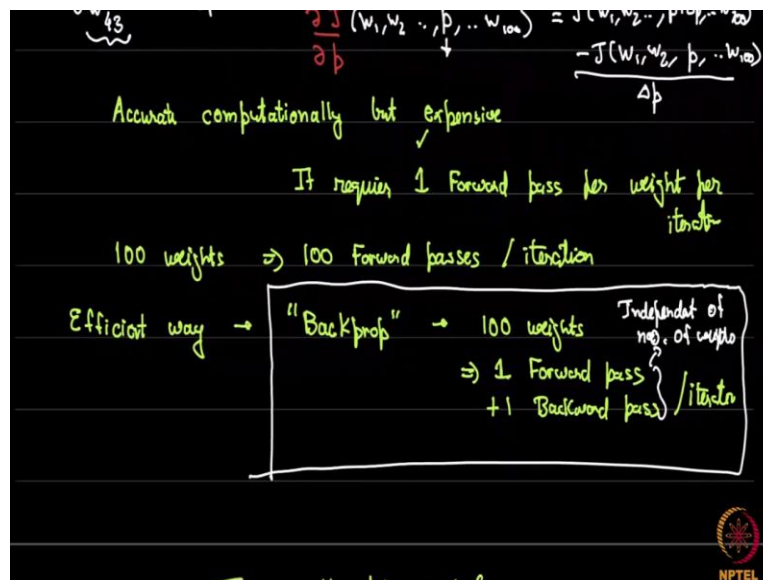 43
∂J/∂p (w₁, w₂ .., p, .. w₁₀₀) = J(w₁, w₂ .., p
- J(w₁, w₂, p, .. w₁₀₀)
Δp
Accurate computationally but expensive
It requires 1 Forward pass per weight per
100 weights ⇒ 100 Forward passes / iteration
Efficient way → "Backprop" → 100 weights
Independat of
no. of
⇒ 1 Forward pass
+1 Backward pass
NPTEL